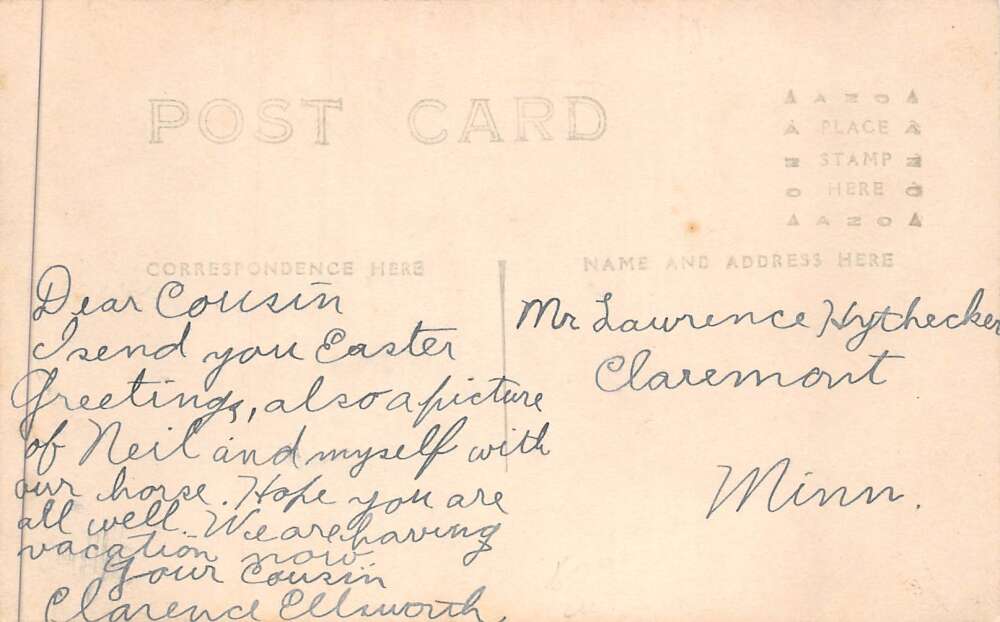 POST CARD
AZO
PLACE
STAMP
HERE
AZO
CORRESPONDENCE HERE
NAME AND ADDRESS HERE
Dear Cousin
I send you Easter
Greetings, also a picture
of Neil and myself with
our horse. Hope you are
all well. We are having
vacation now.
Your Cousin
Clarence Ellsworth.
Mr Lawrence Hythecker
Claremont
Minn.